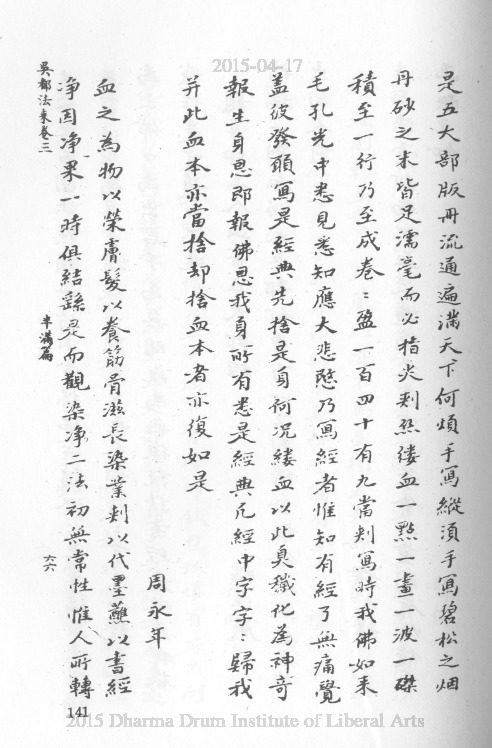 2015-04-17
是五大部版冊流通遍滿天下何煩手寫縱須手寫碧松之烟
丹砂之末皆足濡毫而必指尖刺然縷血一點一畫一波一磔
積至一行乃至成卷:盈一百四十有九當刺寫時我佛如来
毛孔光中悉見悉知應大悲愍乃寫經者惟知有經了無痛覺
蓋彼發願寫是經典先捨是身何况縷血以此臭穢化為神奇
報生身恩即報佛恩我身所有悉是經典凡經中字字:歸我
并此血本亦當捨却捨血本者亦復如是
周永年
血之為物以榮膚髮以養筋骨滋長染業刺以代墨蘸以書經
净因净果一時俱結繇是而觀染净二法初無常性惟人所轉
吳都法乘卷三
半滿篇
六六
141
2015 Dharma Drum Institute of Liberal Arts